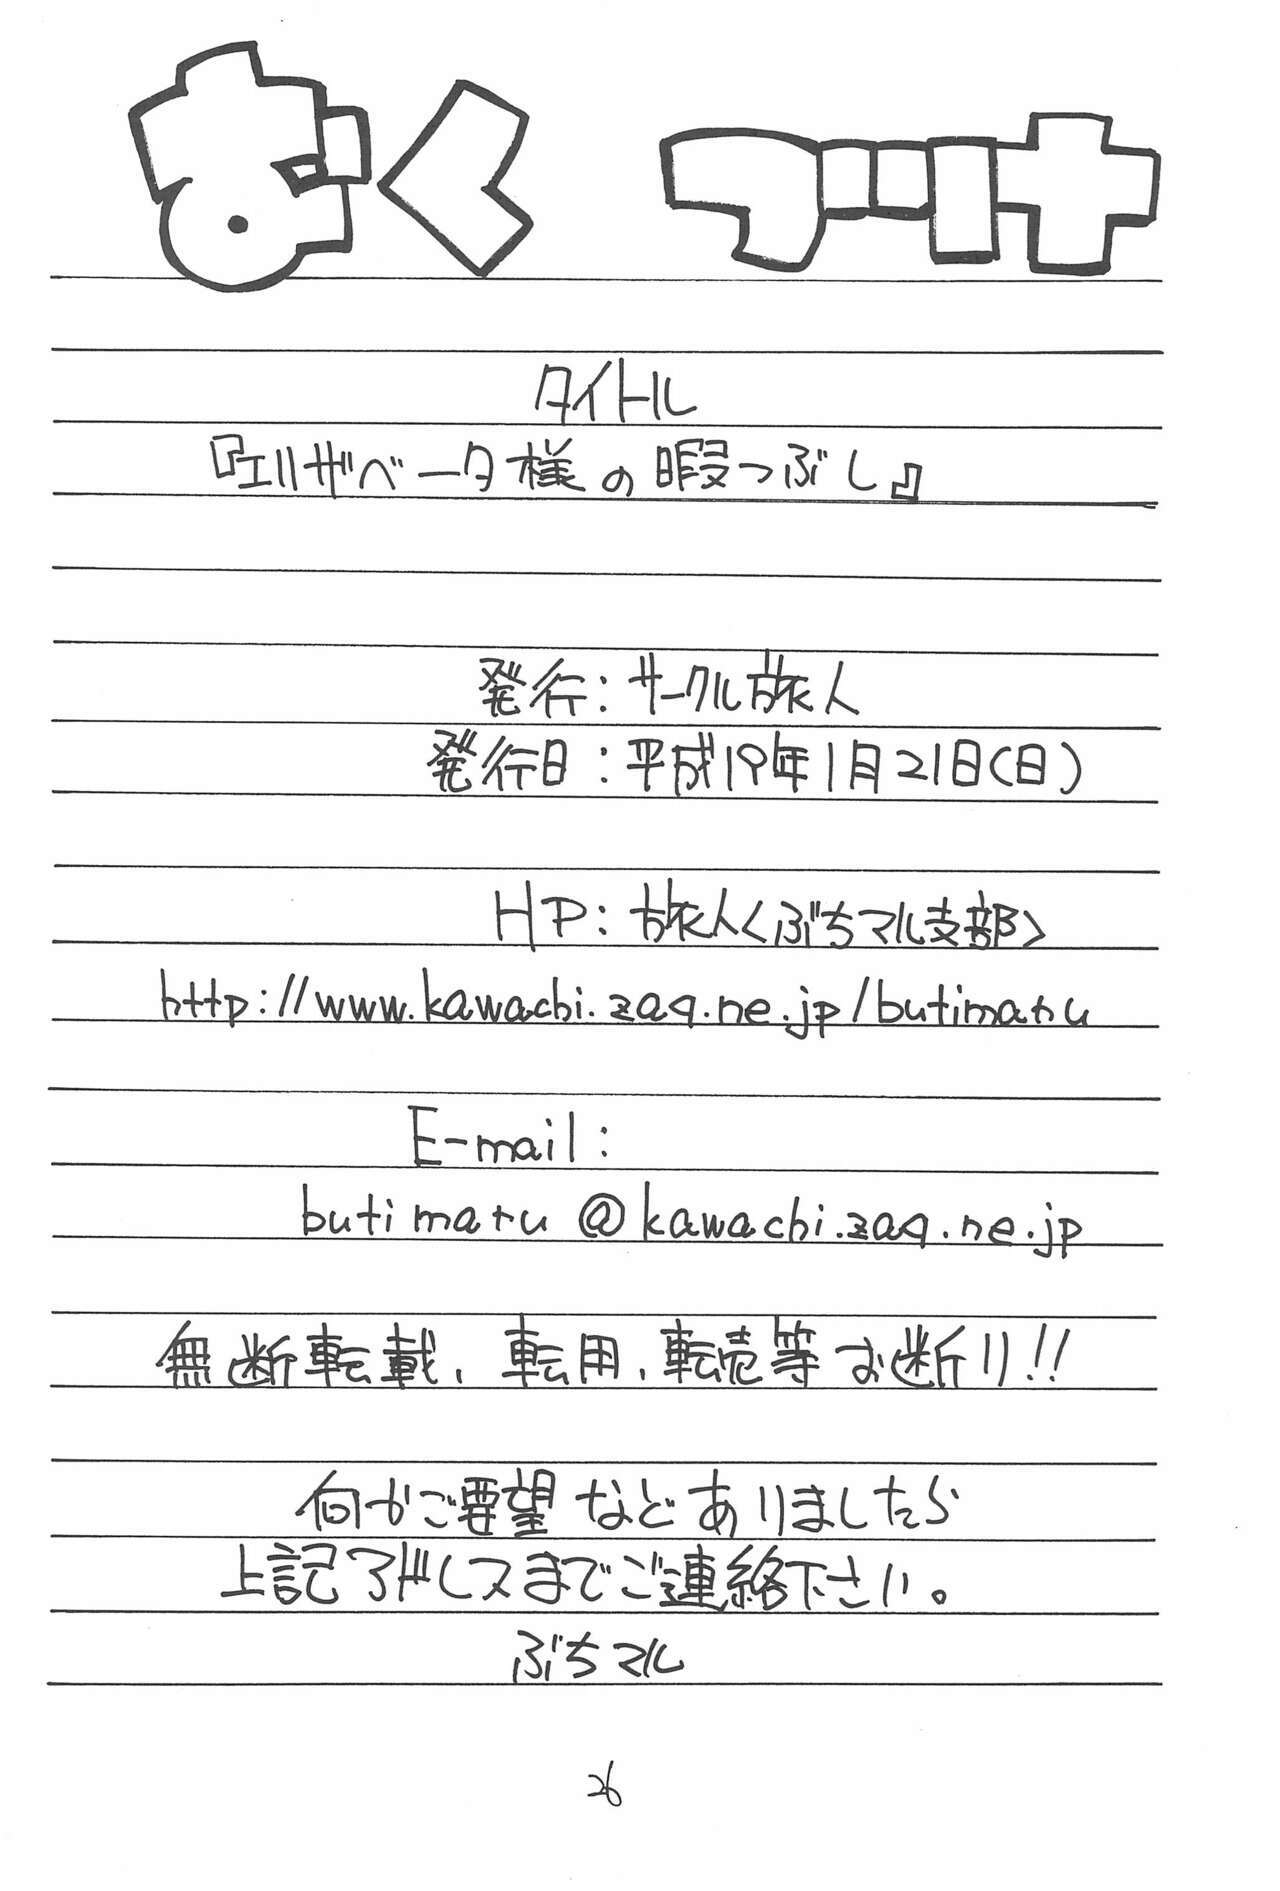 おくづけ
タイトル
『エリザベータ様の暇つぶし』
発行：サークル旅人
発行日：平成19年1月21日(日)
HP：旅人<ぶちマル支部>
http://www.kawachi.zaq.ne.jp/butimaru
E-mail：
butimaru@kawachi.zaq.ne.jp
無断転載、転用、転売等お断り!!
何かご要望などありましたら
上記アドレスまでご連絡下さい。
ぶちマル
26